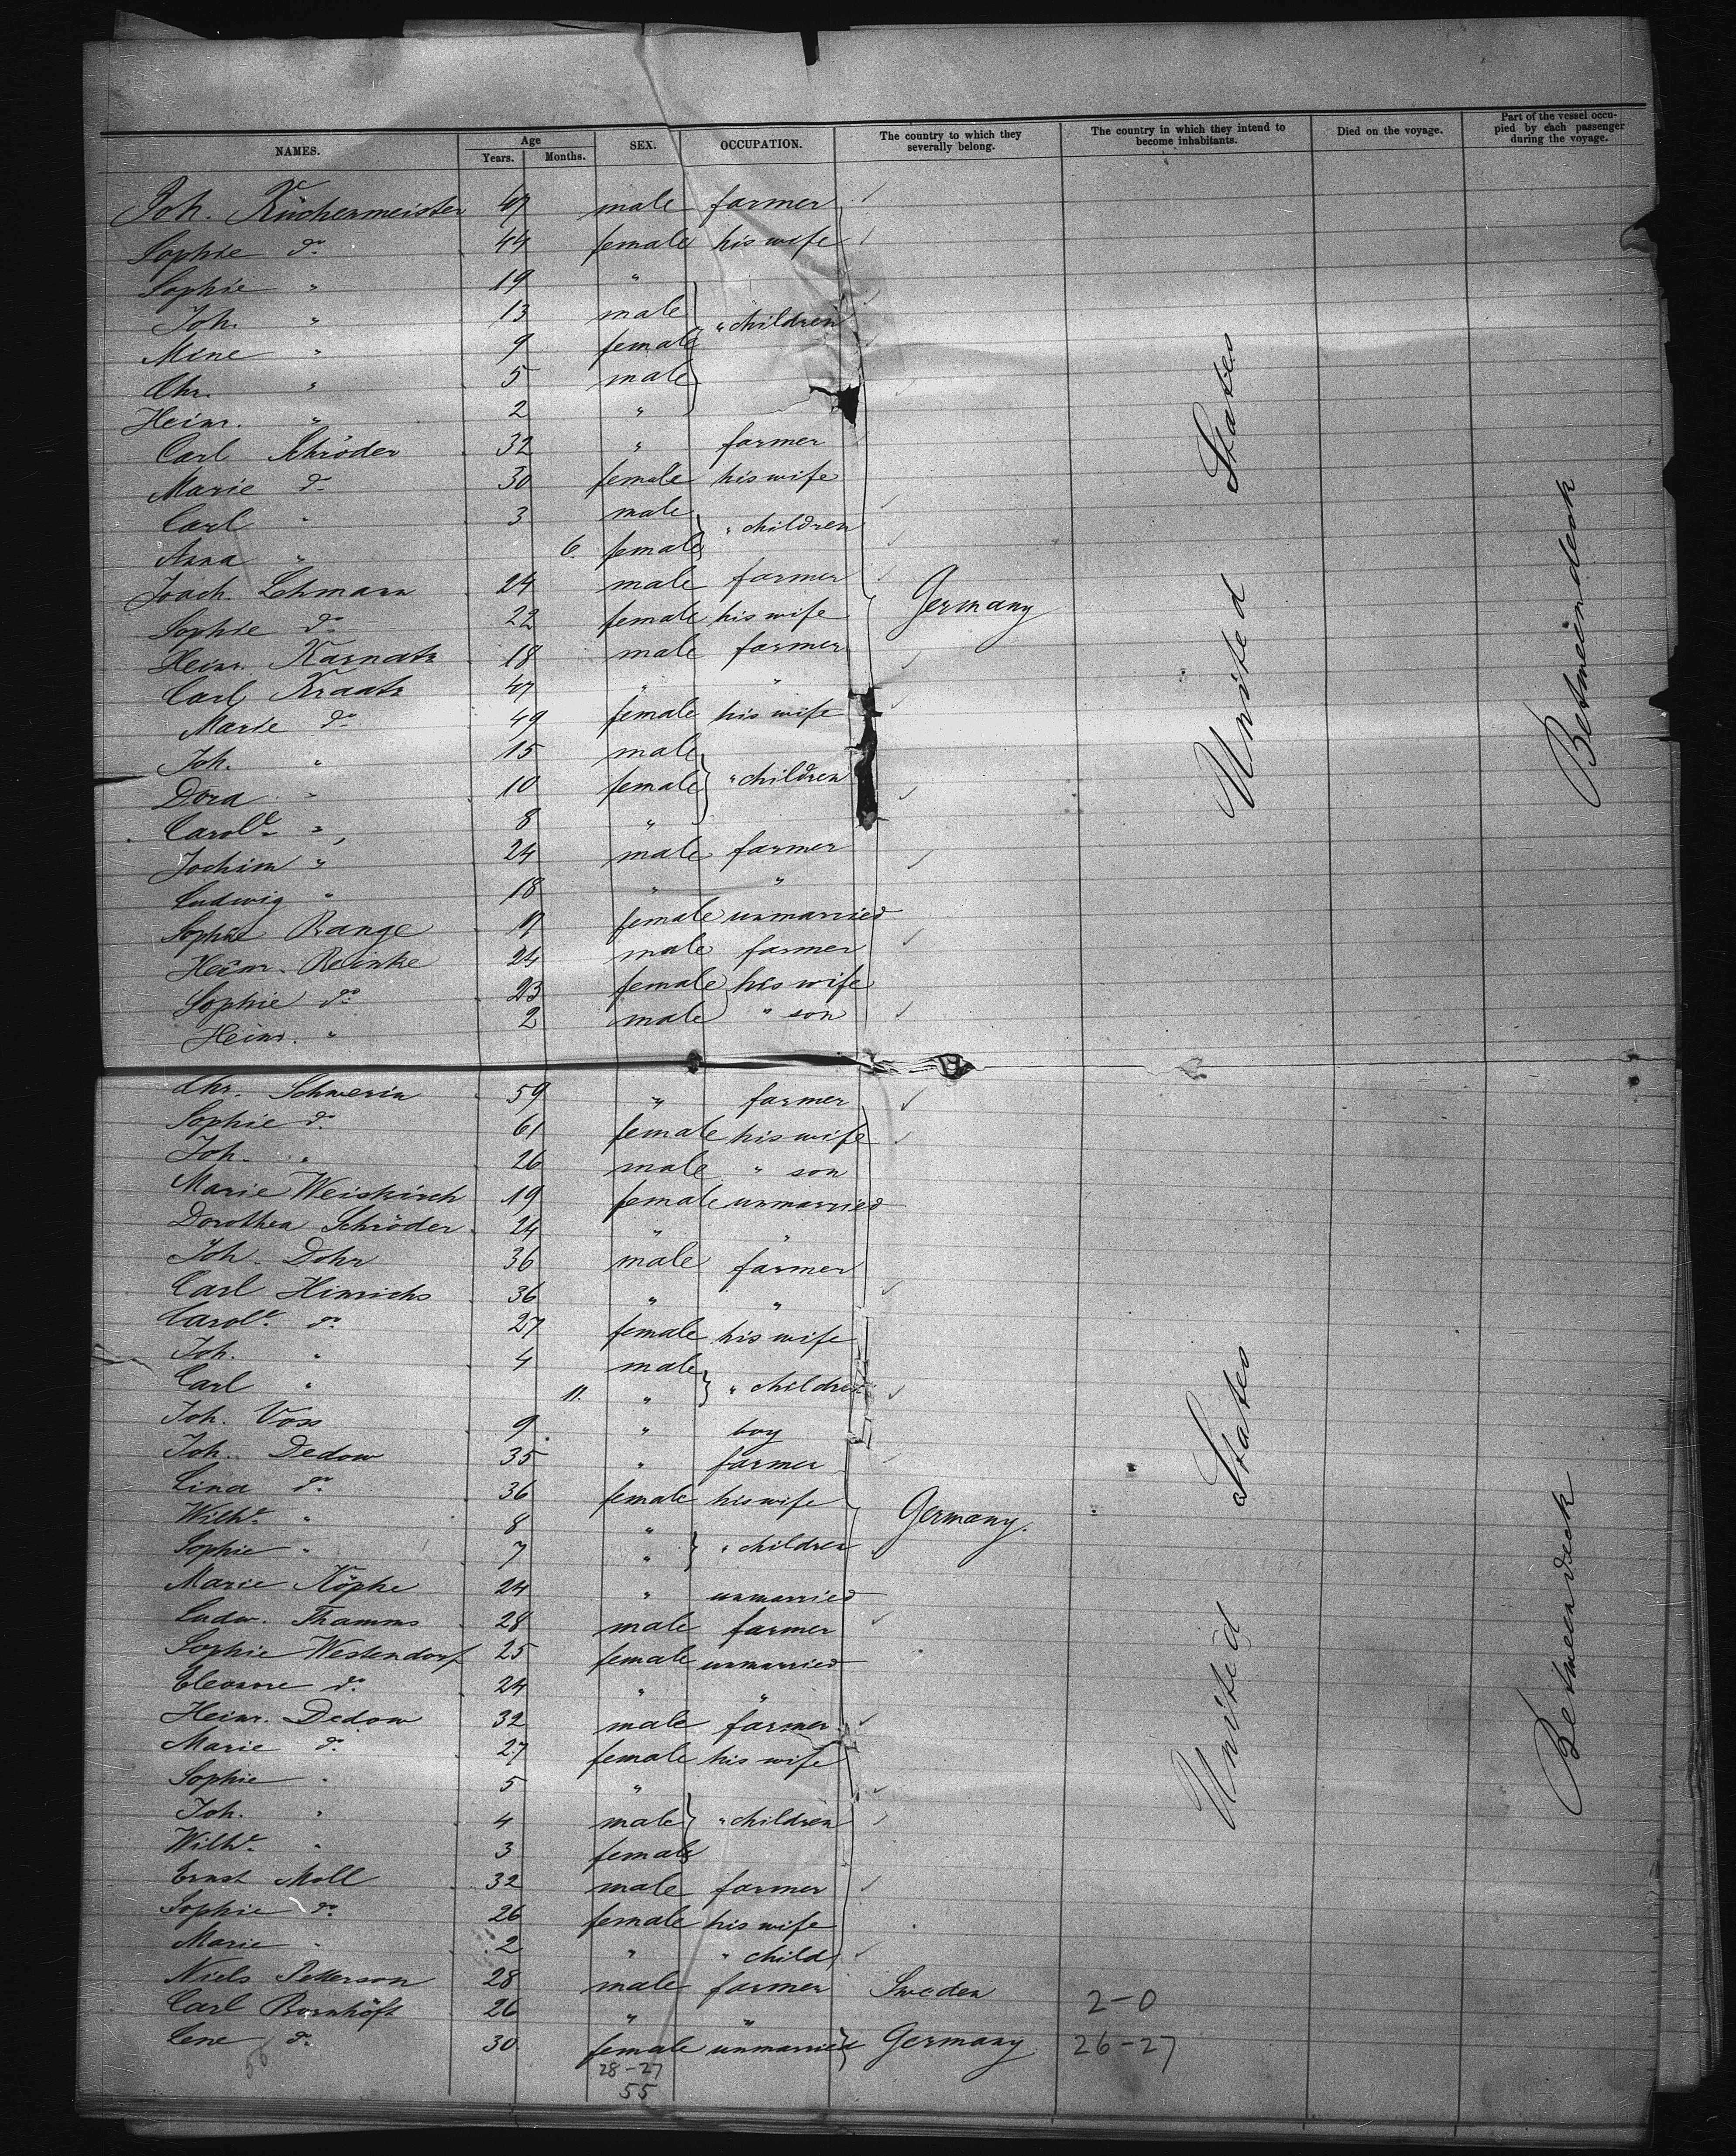 NAMES. Age Years. Months. SEX. OCCUPATION. The country to which they severally belong. The country in which they intend to become inhabitants. Died on the voyage. Part of the vessel occupied by each passenger during the voyage.
Joh. Küchenmeister 47 male farmer
Sophie do 44 female his wife
Sophie " 19 "
Joh. " 13 male " children
Mine " 9 female
Chr. " 5 male
Heinr. " 2 "
Carl Schröder 32 " farmer
Marie do 30 female his wife
Carl " 3 male " children
Anna " 6. female
Joach. Lehmann 24 male farmer Germany
Sophie do 22 female his wife
Heinr. Karnatz 18 male farmer
Carl Kraatz 47 " "
Marie do 49 female his wife
Joh. " 15 male
Dora " 10 female " children
Carole " 8 "
Jochim " 24 male farmer
Ludwig " 18 " "
Sophie Range 17 female unmarried
Heinr. Reinke 24 male farmer
Sophie do 23 female his wife
Heinr. " 2 male " son
United States
Between deck
Chr. Schwerin 59 " farmer
Sophie do 61 female his wife
Joh. " 26 male " son
Marie Weiskirch 19 female unmarried
Dorothea Schröder 24 " "
Joh. Dohr 36 male farmer
Carl Hinrichs 36 " "
Carole do 27 female his wife
Joh. " 4 male " children
Carl " 11. "
Joh. Voss 9 " boy
Joh. Dedow 35 " farmer
Lina do 36 female his wife Germany.
Wilhe " 8 " " children
Sophie " 7 "
Marie Köphe 24 " unmarried
Ludw. Thamms 28 male farmer
Sophie Westendorf 25 female unmarried
Eleonore do 24 " "
Heinr. Dedow 32 male farmer
Marie do 27 female his wife
Sophie " 5 "
Joh. " 4 male " children
Wilhe " 3 female
Ernst Moll 32 male farmer
Sophie do 26 female his wife
Marie " 2 " " child
Niels Petterson 28 male farmer Sweden 2-0
Carl Bornhöft 26 " "
Lene do 30 female unmarried Germany 26-27
United States
Between deck
56 28-27
55